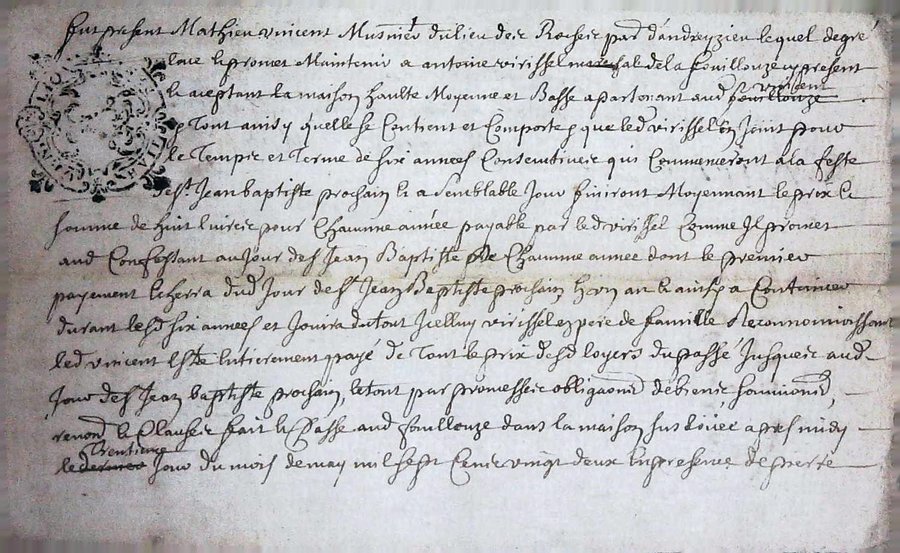 fut present Mathieu vincent Musnier du lieu des Rocher par d'andrezieu lequel degre
loue et promet Maintenir a antoine virissel mareschal de la fouillouze cy present
et aceptant la maison haulte Moyenne et Basse apartenant aud fouillouze vincent
et Tout ainsy quelle se Contient et Comporte et que led virissel en Joint pour
le Temps et Terme de six années Consecutives qui Commenceront a la feste
de st Jean baptiste prochain et a Semblable Jour finiront Moyennant le prix et
somme de huit livres pour Chacune année payable par led virissel Comme Il promet
aud Confessant au Jour de st Jean Baptiste de Chacune année dont le premier
payement echerra dud Jour de st Jean Baptiste prochain en un an et ainsy a Continuer
durant lesd six années et Jouira du tout Icelluy virissel en pere de famille Reconnoissant
led vincent estre Entierement payé de Tout le prix desd loyers du passé Jusques aud
Jour de st Jean baptiste prochain, le tout par promesses obligaons de biens soumions,
renonc et Clauses fait et Passé aud fouillouze dans la maison susd apres midy
le dernier Trentieme Jour du mois de may mil sept Cens vingt deux En presence de